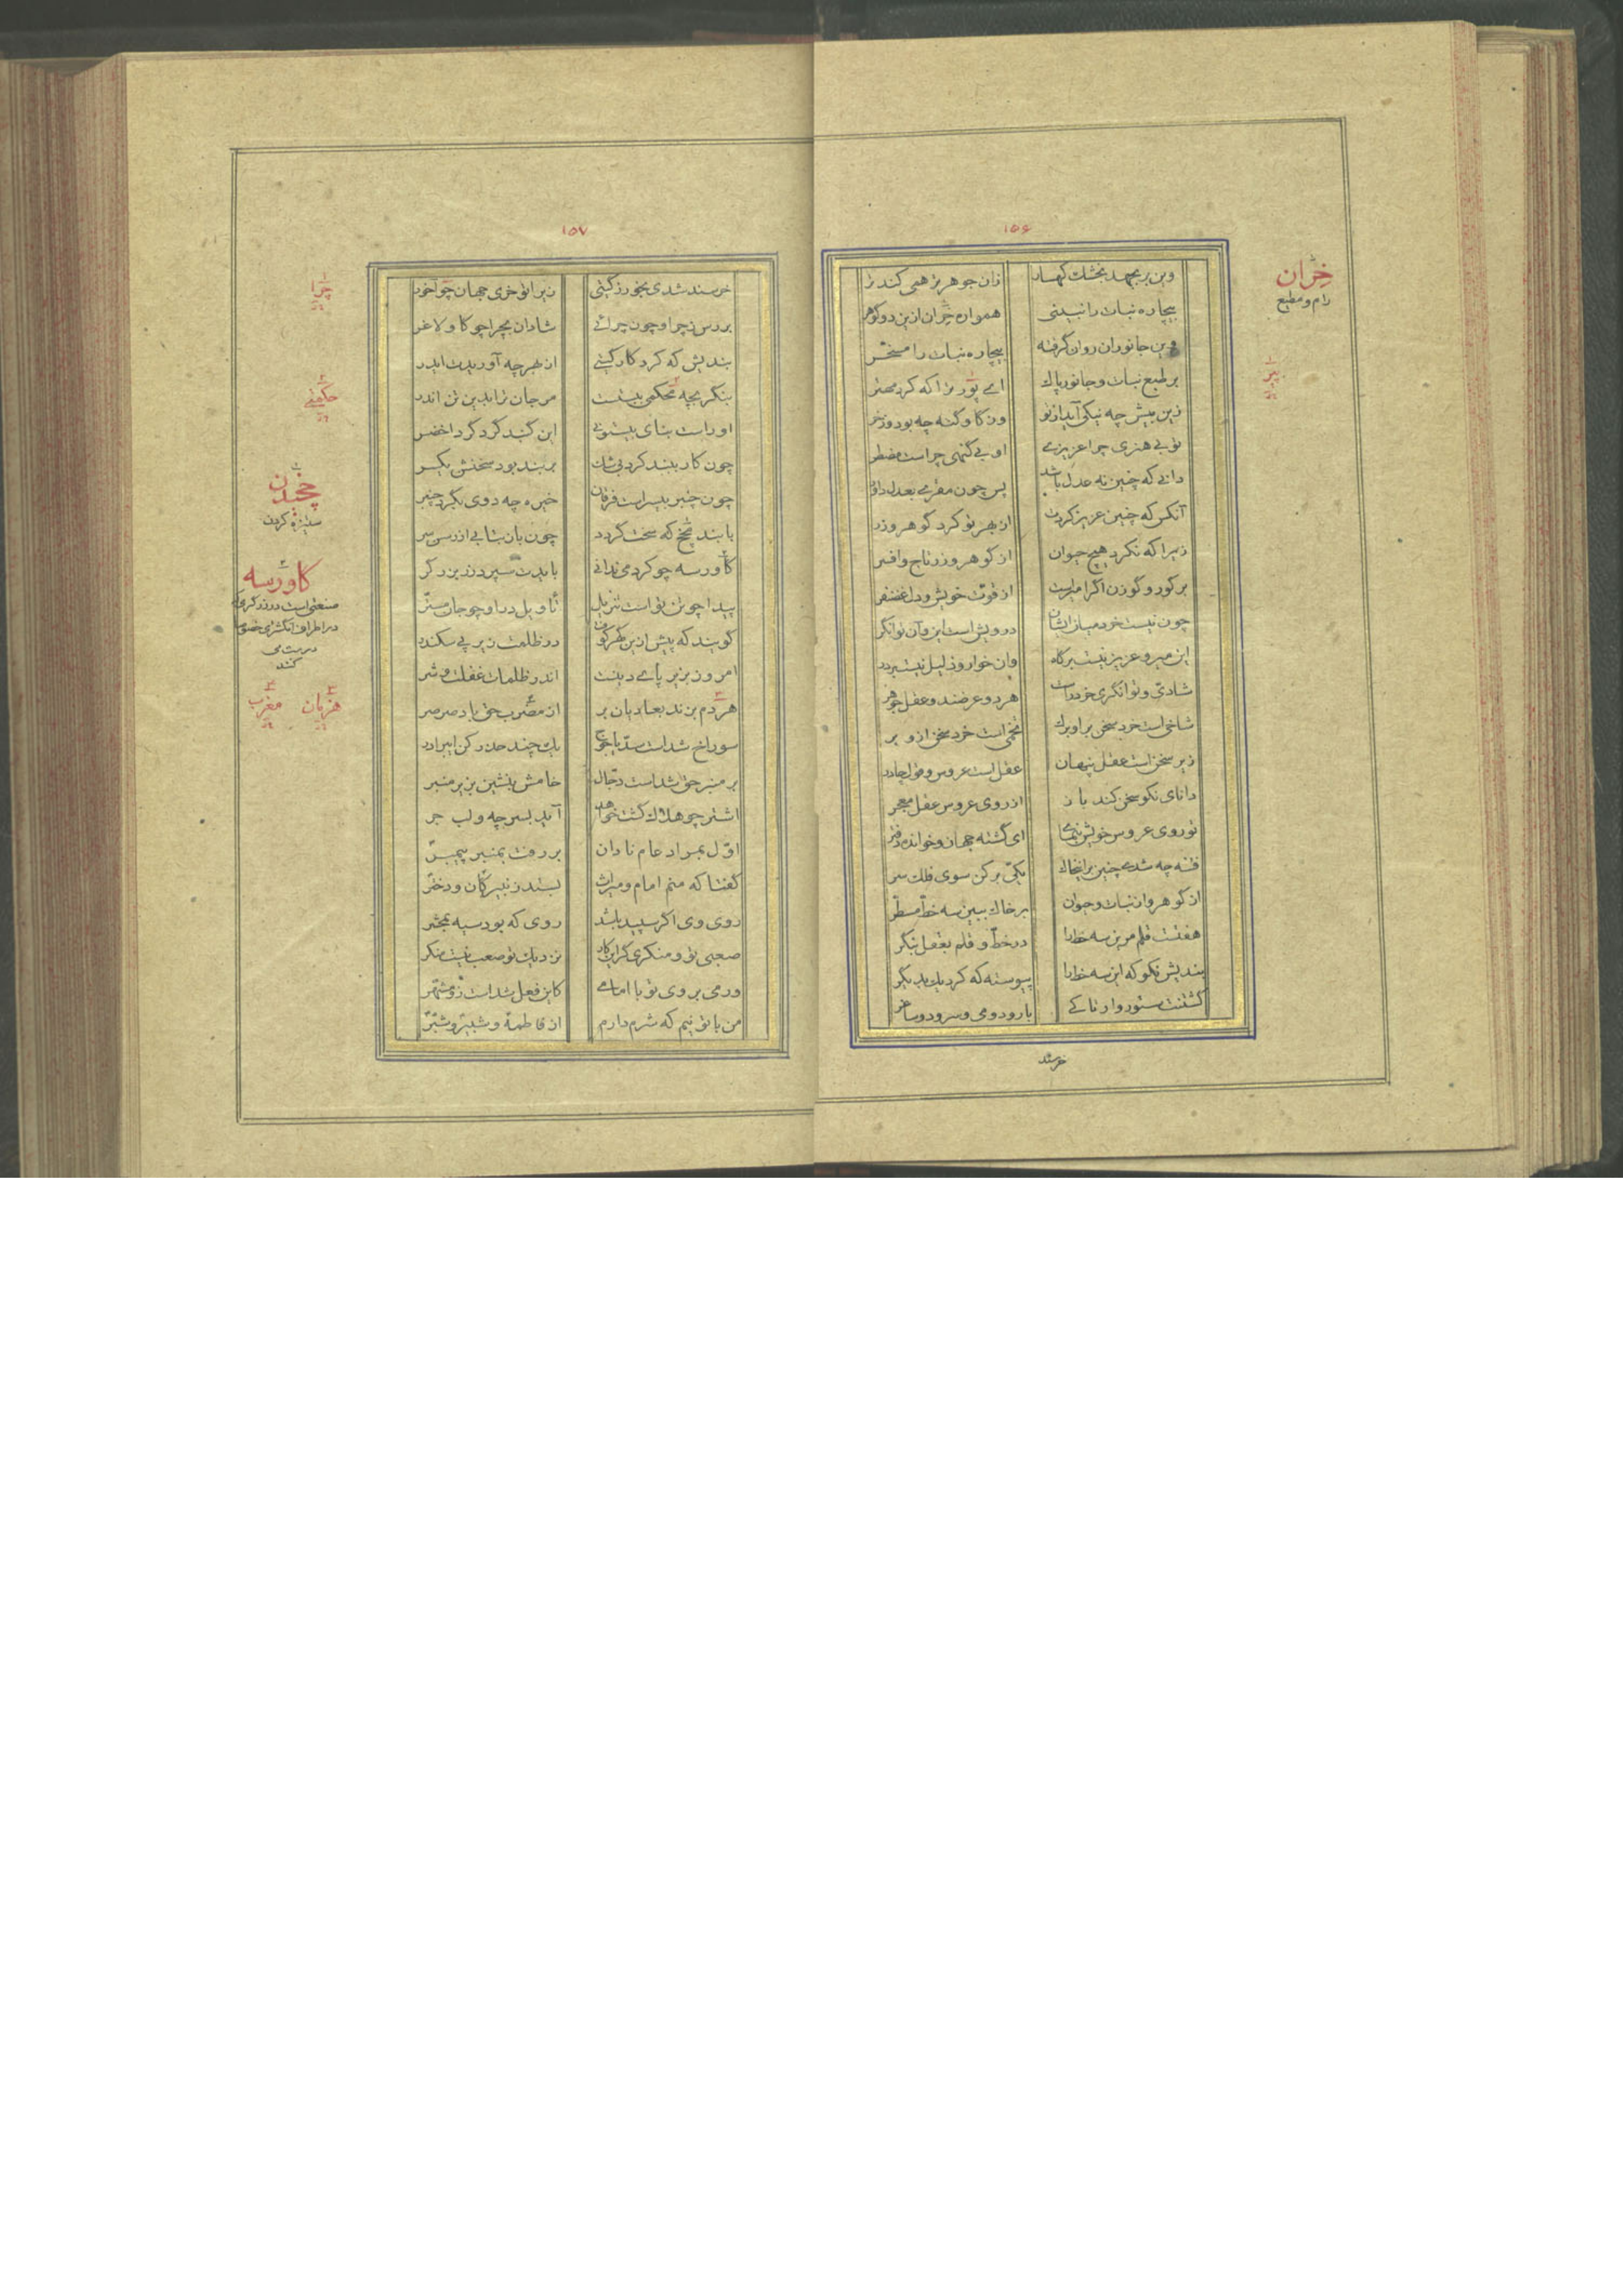 ۱۵۶
وین بر بجهد بخشك كهسار زان جوهر تر همی كند تر
بیچاره نبات را نبینی همواره خران ازین دو گوهر
خران
رام و مطیع
وین جانوران روان گرفته بیچاره نبات را مسخر
بر طبع نبات و جانور پاك اے پور ترا كه كرد مهتر
زین بیش چه نیكی آید از تو وز گاو گنه چه بود و ز خر
تو بے هنری چرا عزیزے او بے گنهی چراست مضطر
دانے كه چنین نه عدل باشد پس چون مقرے بعدل داور
آنكس كه چنین عزیز كردت از بهر تو كرد گوهر و زر
زیرا كه نكرد هیچ حیوان از گوهر و زر تاج و افسر
بر گور و گوزن اگر امیرست از قوت خویش و دل غضنفر
چون نیست خرد میان ایشان درویش است این و آن توانگر
این میر و عزیز نیست بر گاه وان خوار و ذلیل نیست بر در
شادی و توانگری خرد راست هر دو عرضند و عقل جوهر
شاخی است خرد سخن بر او برگ تخمی است خرد سخن ازو بر
زیر سخن است عقل پنهان عقل است عروس و قول چادر
دانای نكو سخن كند باز از روی عروس عقل معجر
تو روی عروس خویش بنمای ای گشته جهان و خوانده دفتر
فتنه چه شدے چنین بر این خاك یكی بر كن سوی فلك سر
از گوهر و از نبات و حیوان بر خاك ببین سه خط مسطر
هفتست قلم مرین سه خط را در خط و قلم بعقل بنگر
بندیش نكو كه این سه خط را پیوسته كه كرد یك بدیگر
گشتنت ستوروار تا كے با رود و می و سرود و ساغر
خرسند
۱۵۷
خرسند شدی بخور ز گیتی زیرا تو خری جهان چو آخور
چرا
بررس ز چرا و چون چرائے شادان بچرا چو گاو لاغر
بندیش كه كرد كار گیتے از بهر چه آوریدت ایدر
بنگر بچه محكمی ببستست مرجان ترا بدین تن اندر
او راست بنای بیستونے این گنبد گرد گرد اخضر
چون كار ببند كرد بی شك پر بند بود سخنش یكسر
چون چنبر بیسراست فرقان خیره چه دوی بگرد چنبر
چخیدن
ستیزه كردن
با بند مچخ كه سخت گردد چون باز بتابے از رسن سر
گاورسه چو كرد می ندانے بایدت سپرد زر بزرگر
گاورسه
پیدا چو تن تو است تنزیل تأویل در او چو جان مستر
گویند كه پیش ازین گهر كوفت در ظلمت زیر پے سكندر
امروز بزیر پاے دینست اندر ظلمات غفلت و شر
هر دم بزند بعاد بان بر از مغرب حق باد صرصر
سوراخ شداست سد یاجوج یك چند حذر كن ای برادر
بر منبر حق شداست دجال خامش بنشین بزیر منبر
اشتر چو هلاك گشت خواهد آید بسر چه و لب جر
اول بمراد عام نادان بر رفت بمنبر پیمبر
گفتا كه منم امام و میراث بستد ز نبیرگان و دختر
روی وی اگر سپید باشد روی كه بود سیه بمحشر
صعبی تو و منكری گر این كار نزدیك تو صعب نیست منكر
ور می بروی تو با امامے كاین فعل شداست زو مشهر
من با تو نیم كه شرم دارم از فاطمه و شبیر و شبر